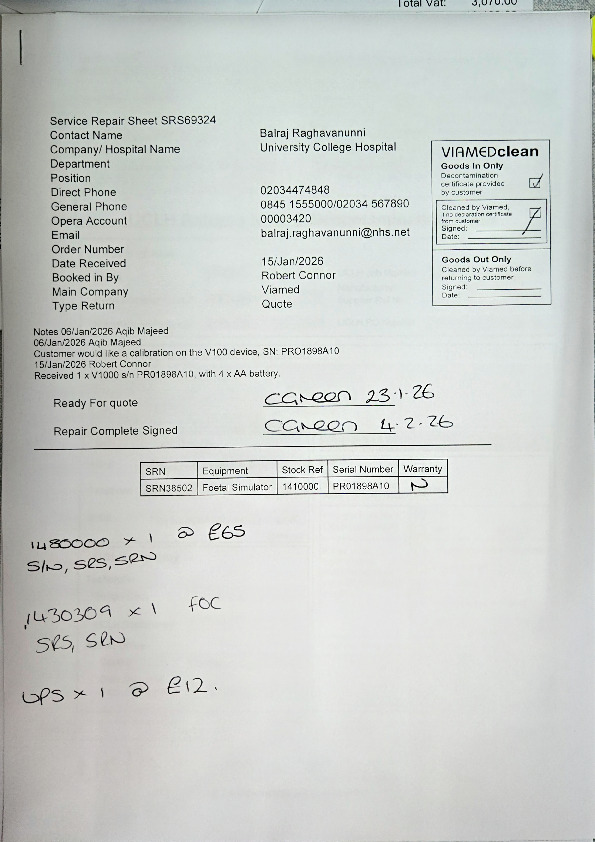 Total Vat: 3,070.00
Service Repair Sheet SRS69324
Contact Name Balraj Raghavanunni
Company/ Hospital Name University College Hospital
Department
Position
Direct Phone 02034474848
General Phone 0845 1555000/02034 567890
Opera Account 00003420
Email balraj.raghavanunni@nhs.net
Order Number
Date Received 15/Jan/2026
Booked in By Robert Connor
Main Company Viamed
Type Return Quote
VIAMEDclean
Goods In Only
Decontamination
certificate provided
by customer
Cleaned by Viamed,
if no declaration certificate
from customer
Signed:
Date:
Goods Out Only
Cleaned by Viamed before
returning to customer
Signed:
Date:
Notes 06/Jan/2026 Aqib Majeed
06/Jan/2026 Aqib Majeed
Customer would like a calibration on the V100 device, SN: PRO1898A10
15/Jan/2026 Robert Connor
Received 1 x V1000 s/n PR01898A10, with 4 x AA battery.
Ready For quote CGreen 23·1·26
Repair Complete Signed CGreen 4·2·26
SRN Equipment Stock Ref Serial Number Warranty
SRN38502 Foetal Simulator 1410000 PR01898A10 N
1480000 x 1 @ £65
S/N, SRS, SRN
1430309 x 1 FOC
SRS, SRN
UPS x 1 @ £12.